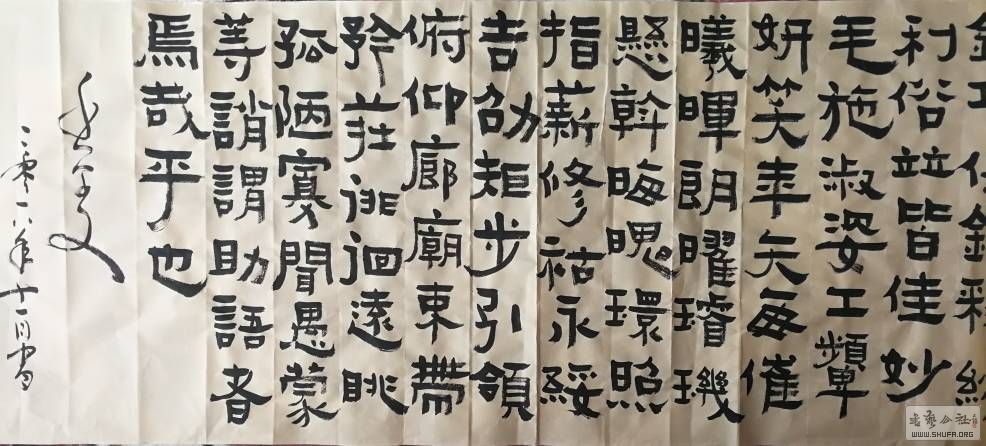 任釣釋紛
利俗竝皆佳妙
毛施淑姿工顰
妍笑年矢每催
曦暉朗曜璿璣
懸幹晦魄環照
指薪修祜永綏
吉劭矩步引領
俯仰廊廟束帶
矜莊徘徊遠眺
孤陋寡聞愚蒙
等誚謂助語者
焉哉乎也
千字文
二零一八年十一月書
書藝公社
WWW.SHUFA.ORG